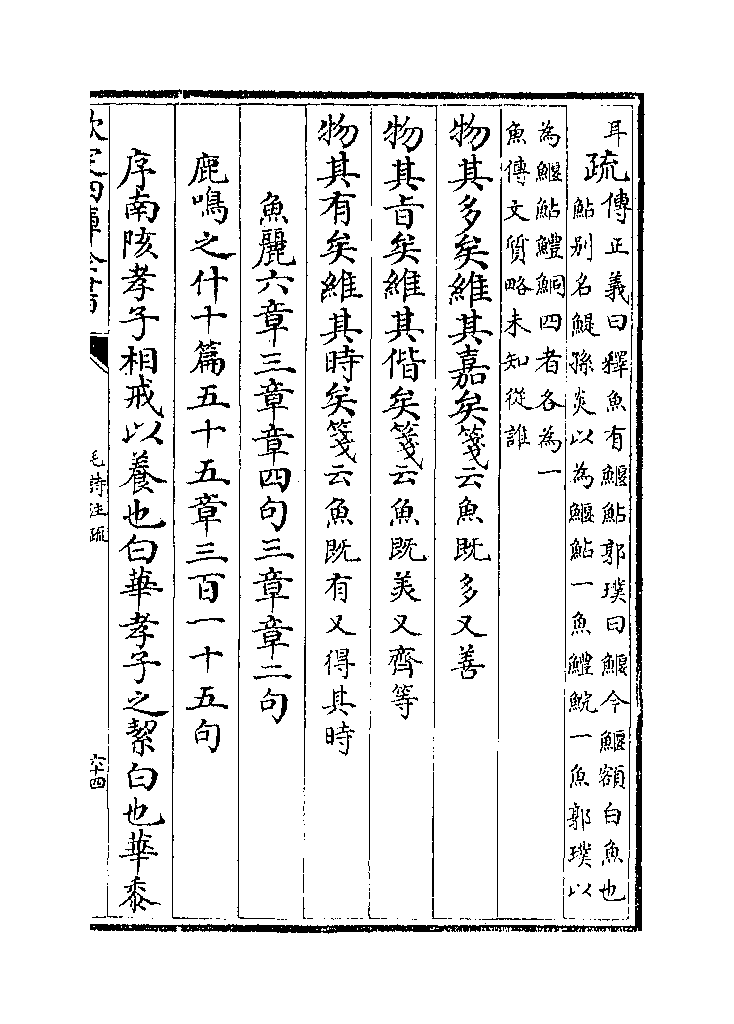 耳
疏
傳正義曰釋魚有鰋鮎郭璞曰鰋今鰋額白魚也
鮎别名鯷孫炎以為鰋鮎一魚鱧鯇一魚郭璞以
為鰋鮎鱧鮦四者各為一
魚傳文質略未知從誰
物其多矣維其嘉矣箋云魚既多又善
物其旨矣維其偕矣箋云魚既美又齊等
物其有矣維其時矣箋云魚既有又得其時
魚麗六章三章章四句三章章二句
鹿鳴之什十篇五十五章三百一十五句
序南陔孝子相戒以養也白華孝子之絜白也華黍
欽定四庫全書
毛詩注疏
六十四